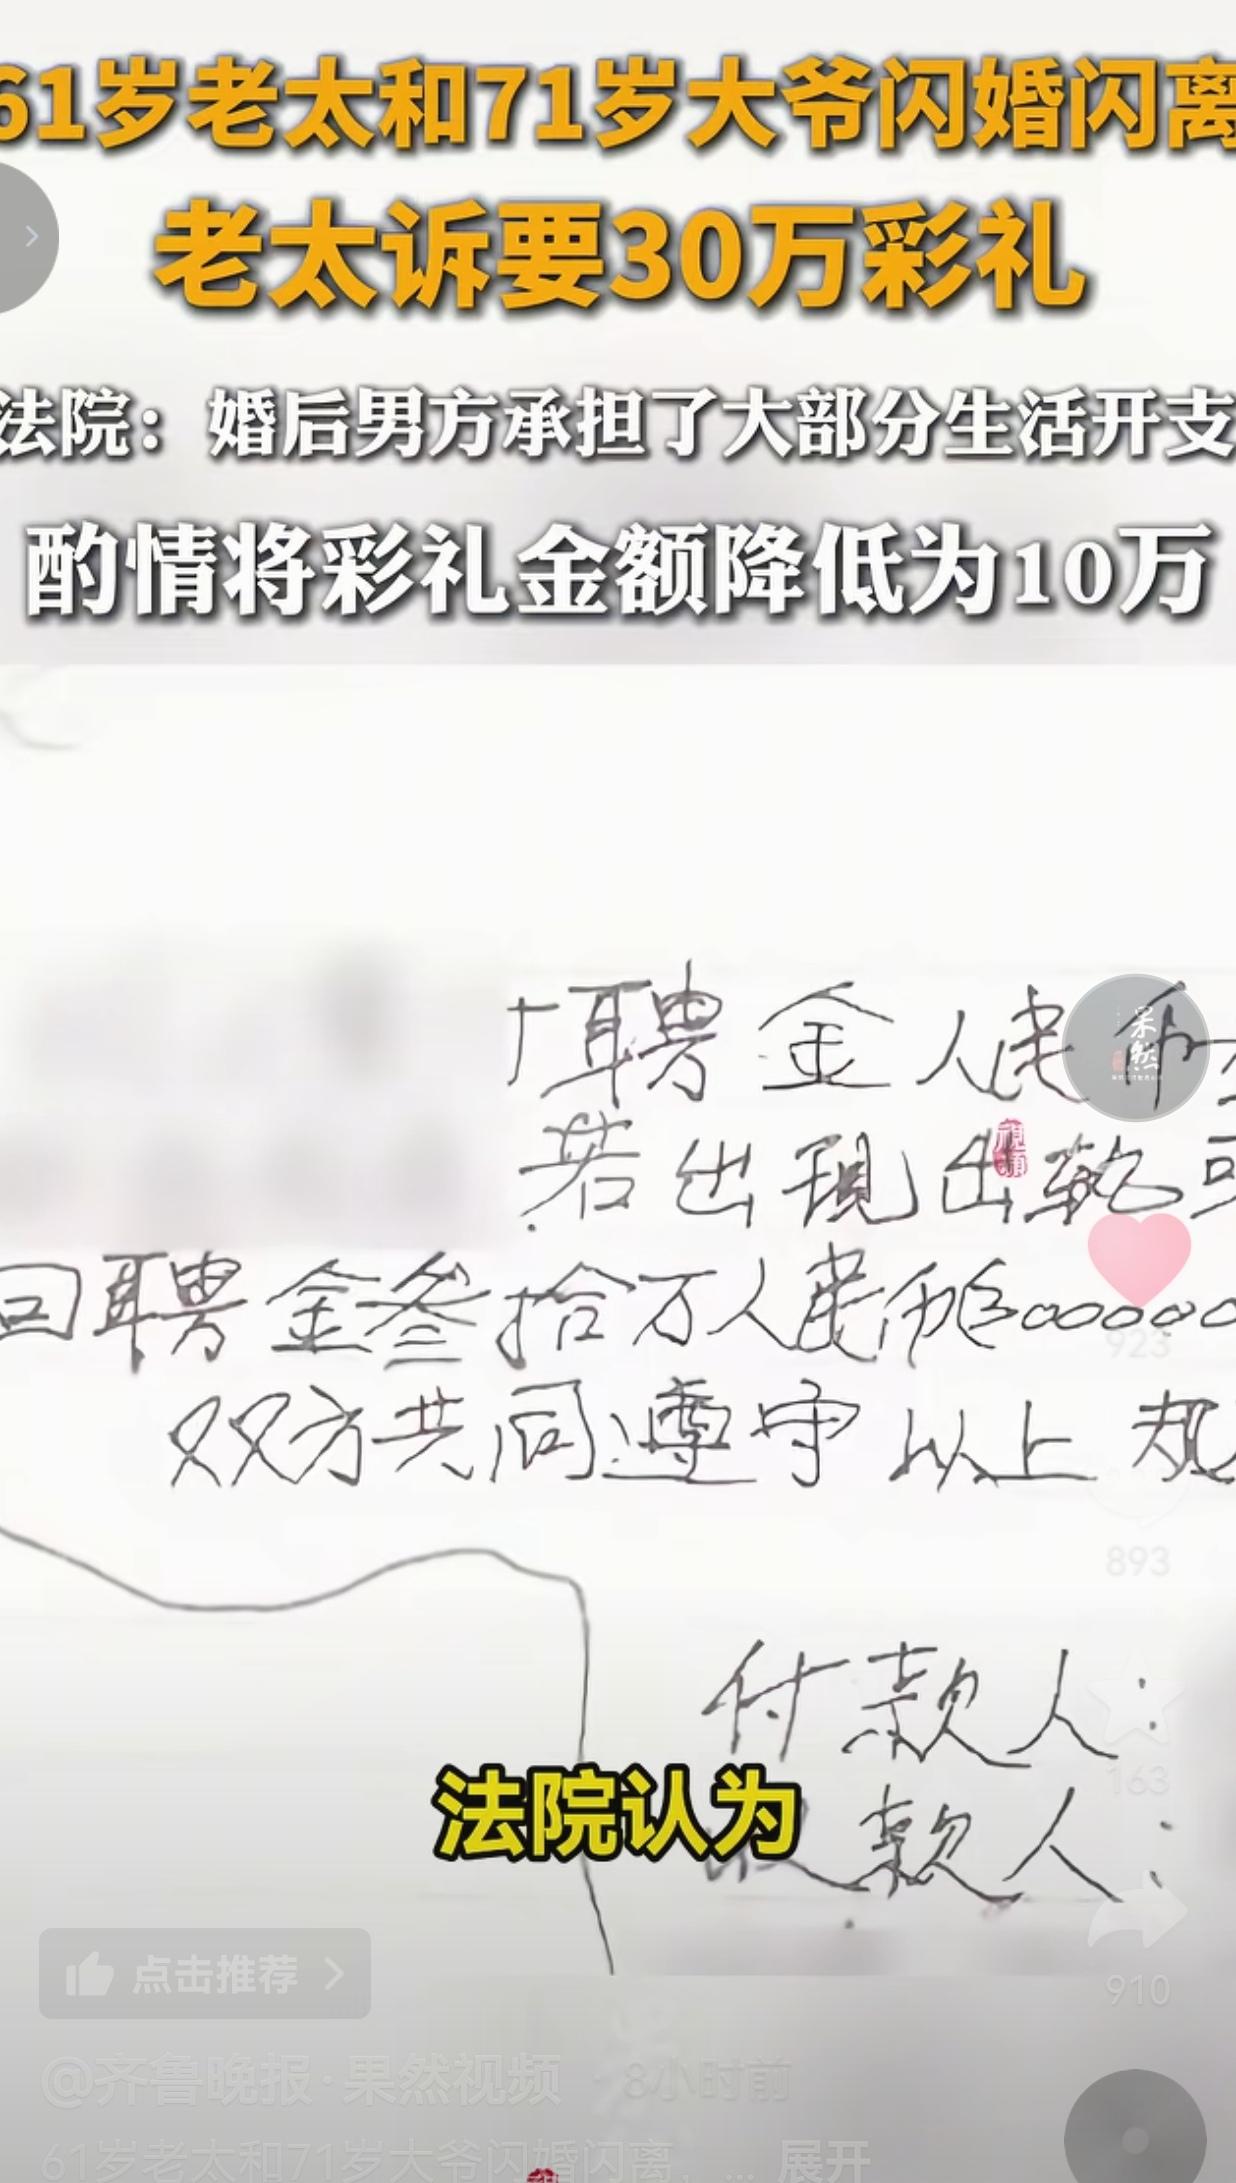 61岁老太和71岁大爷闪婚闪离
老太诉要30万彩礼
法院：婚后男方承担了大部分生活开支
酌情将彩礼金额降低为10万
付聘金人民币
果然
若出现出轨
回聘金叁拾万人民币300000
923
双方共同遵守以上规
893
付款人：
163
法院认为
收款人：
910
点击推荐
@齐鲁晚报·果然视频 · 8小时前
61岁老太和71岁大爷闪婚闪离，... 展开